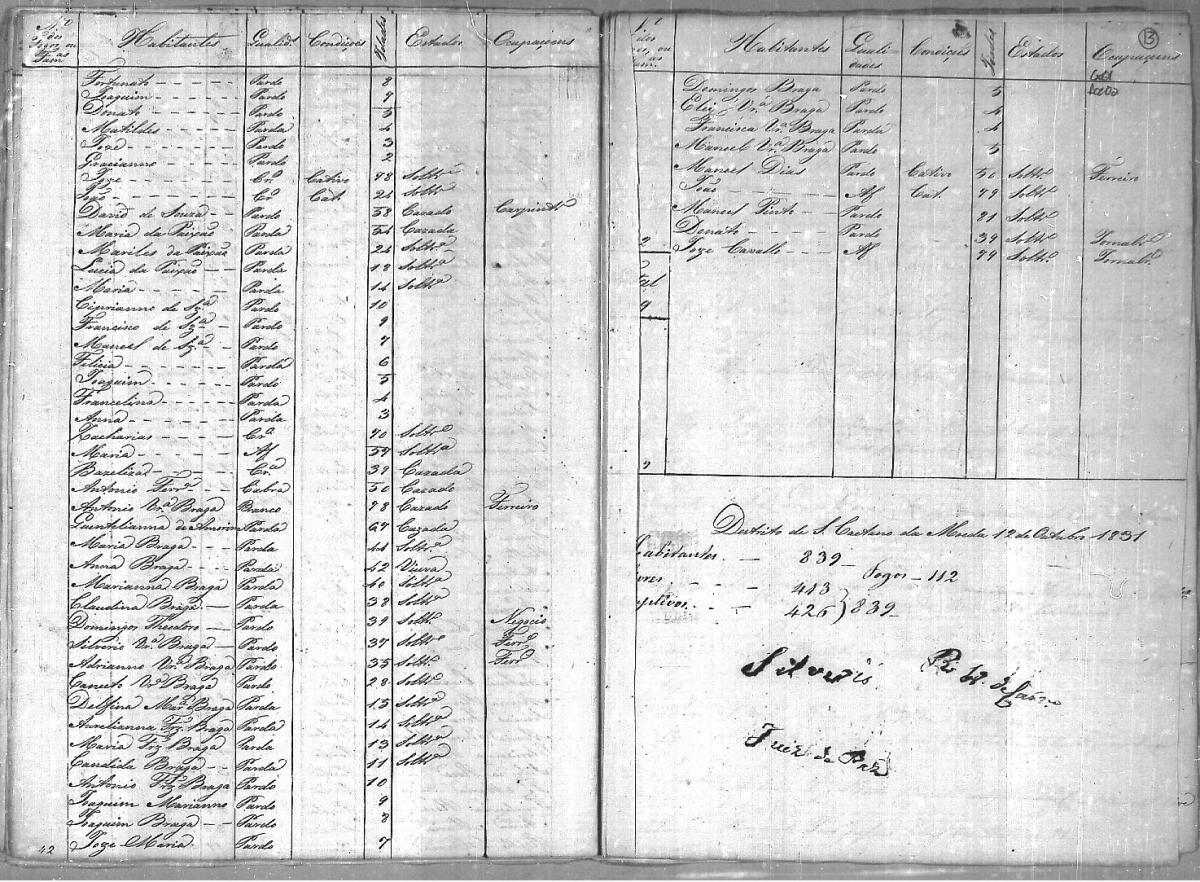 Nº dos Fogos ou Habitantes Qualids Condiçoẽs Idades Estados Ocupaçoens
Fortunato Pardo 8
Joaquim Pardo 7
Donato Pardo 5
Matildes Parda 4
Joze Pardo 3
Gracianno Pardo 2
Joze Crº Cativo 78 Soltrº
João Crº Cat. 24 Soltrº
David de Souza Pardo 58 Cazado Carpintrº
Maria da Paixão Parda 54 Cazada
Mariles da Paixão Parda 24 Soltrª
Lucia da Paixão Parda 18 Soltrª
Maria Parda 14 Soltrª
Ciprianno de Szª Pardo 10
Francisco de Szª Pardo 9
Manoel de Szª Pardo 7
Filicia Parda 6
Joaquim Pardo 5
Francelina Parda 4
Anna Parda 3
Zacharias Crº 70 Soltrº
Maria Af 57 Soltrª
Bazeliza Crª 39 Cazada
Antonio Ferrª Cabra 50 Cazado
Antonio Vrª Braga Branco 78 Cazado Ferreiro
de Amorim Parda 67 Cazada
Maria Braga Parda 44 Soltrª
Anna Braga Parda 42 Viuva
Marianna Braga Parda 40 Soltrª
Claudina Braga Parda 38 Soltrª
Domingos Theodoro Pardo 39 Soltrº Negocio
Silverio Vrª Braga Pardo 37 Soltrº Ferrº
Adrianno Vrª Braga Pardo 35 Soltrº Ferrº
Canuto Vrª Braga Pardo 28 Soltrº
Delfina Marª Braga Parda 15 Soltrª
Aurelianna Frz Braga Parda 14 Soltrª
Maria Frz Braga Parda 13 Soltrª
Candida Braga Parda 11 Soltrª
Antonio Frz Braga Pardo 10
Joaquim Marianno Pardo 9
Joaquim Braga Pardo 8
42 Joze Maria Pardo 7
13
Habitantes Qualidades Condiçoẽs Idades Estados Ocupaçoens
Domingos Braga Pardo 5
Vrª Braga Pardo 4
Francisca Vrª Braga Parda 4
Manoel Vrª Braga Pardo 5
Manoel Dias Pardo Cativo 50 Soltrº Ferreiro
João Af Cat. 79 Soltrº
Manoel Pinto Pardo 21 Soltrº
2 Donato Pardo 39 Soltrº Jornalrº
Joze Cavallo Af 79 Soltrº Jornalrº
tal
9
2
Destrito de S. Caetano da Moeda 12 de Outubro 1831
Habitantes 839
Fogos 112
Livres 413
Captivos 426 } 839
Silverio
Juiz de Paz